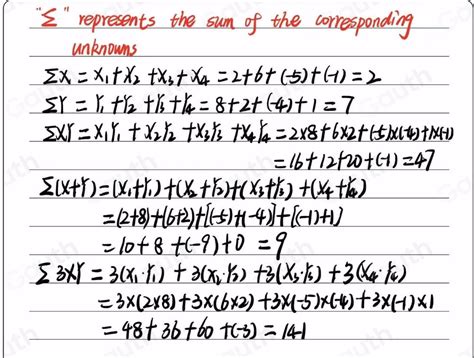 "Σ" represents the sum of the corresponding
unknowns
ΣX = X₁+X₂+X₃+X₄ = 2+6+(-5)+(-1) = 2
ΣY = Y₁+Y₂+Y₃+Y₄ = 8+2+(-4)+1 = 7
ΣXY = X₁Y₁+X₂Y₂+X₃Y₃+X₄Y₄ = 2×8+6×2+(-5)×(-4)+(-1)×1
= 16+12+20+(-1) = 47
Σ(X+Y) = (X₁+Y₁)+(X₂+Y₂)+(X₃+Y₃)+(X₄+Y₄)
= (2+8)+(6+2)+[(-5)+(-4)]+[(-1)+1]
= 10+8+(-9)+0 = 9
Σ3XY = 3(X₁·Y₁)+3(X₂·Y₂)+3(X₃·Y₃)+3(X₄·Y₄)
= 3×(2×8)+3×(6×2)+3×(-5)×(-4)+3×(-1)×1
= 48+36+60+(-3) = 141